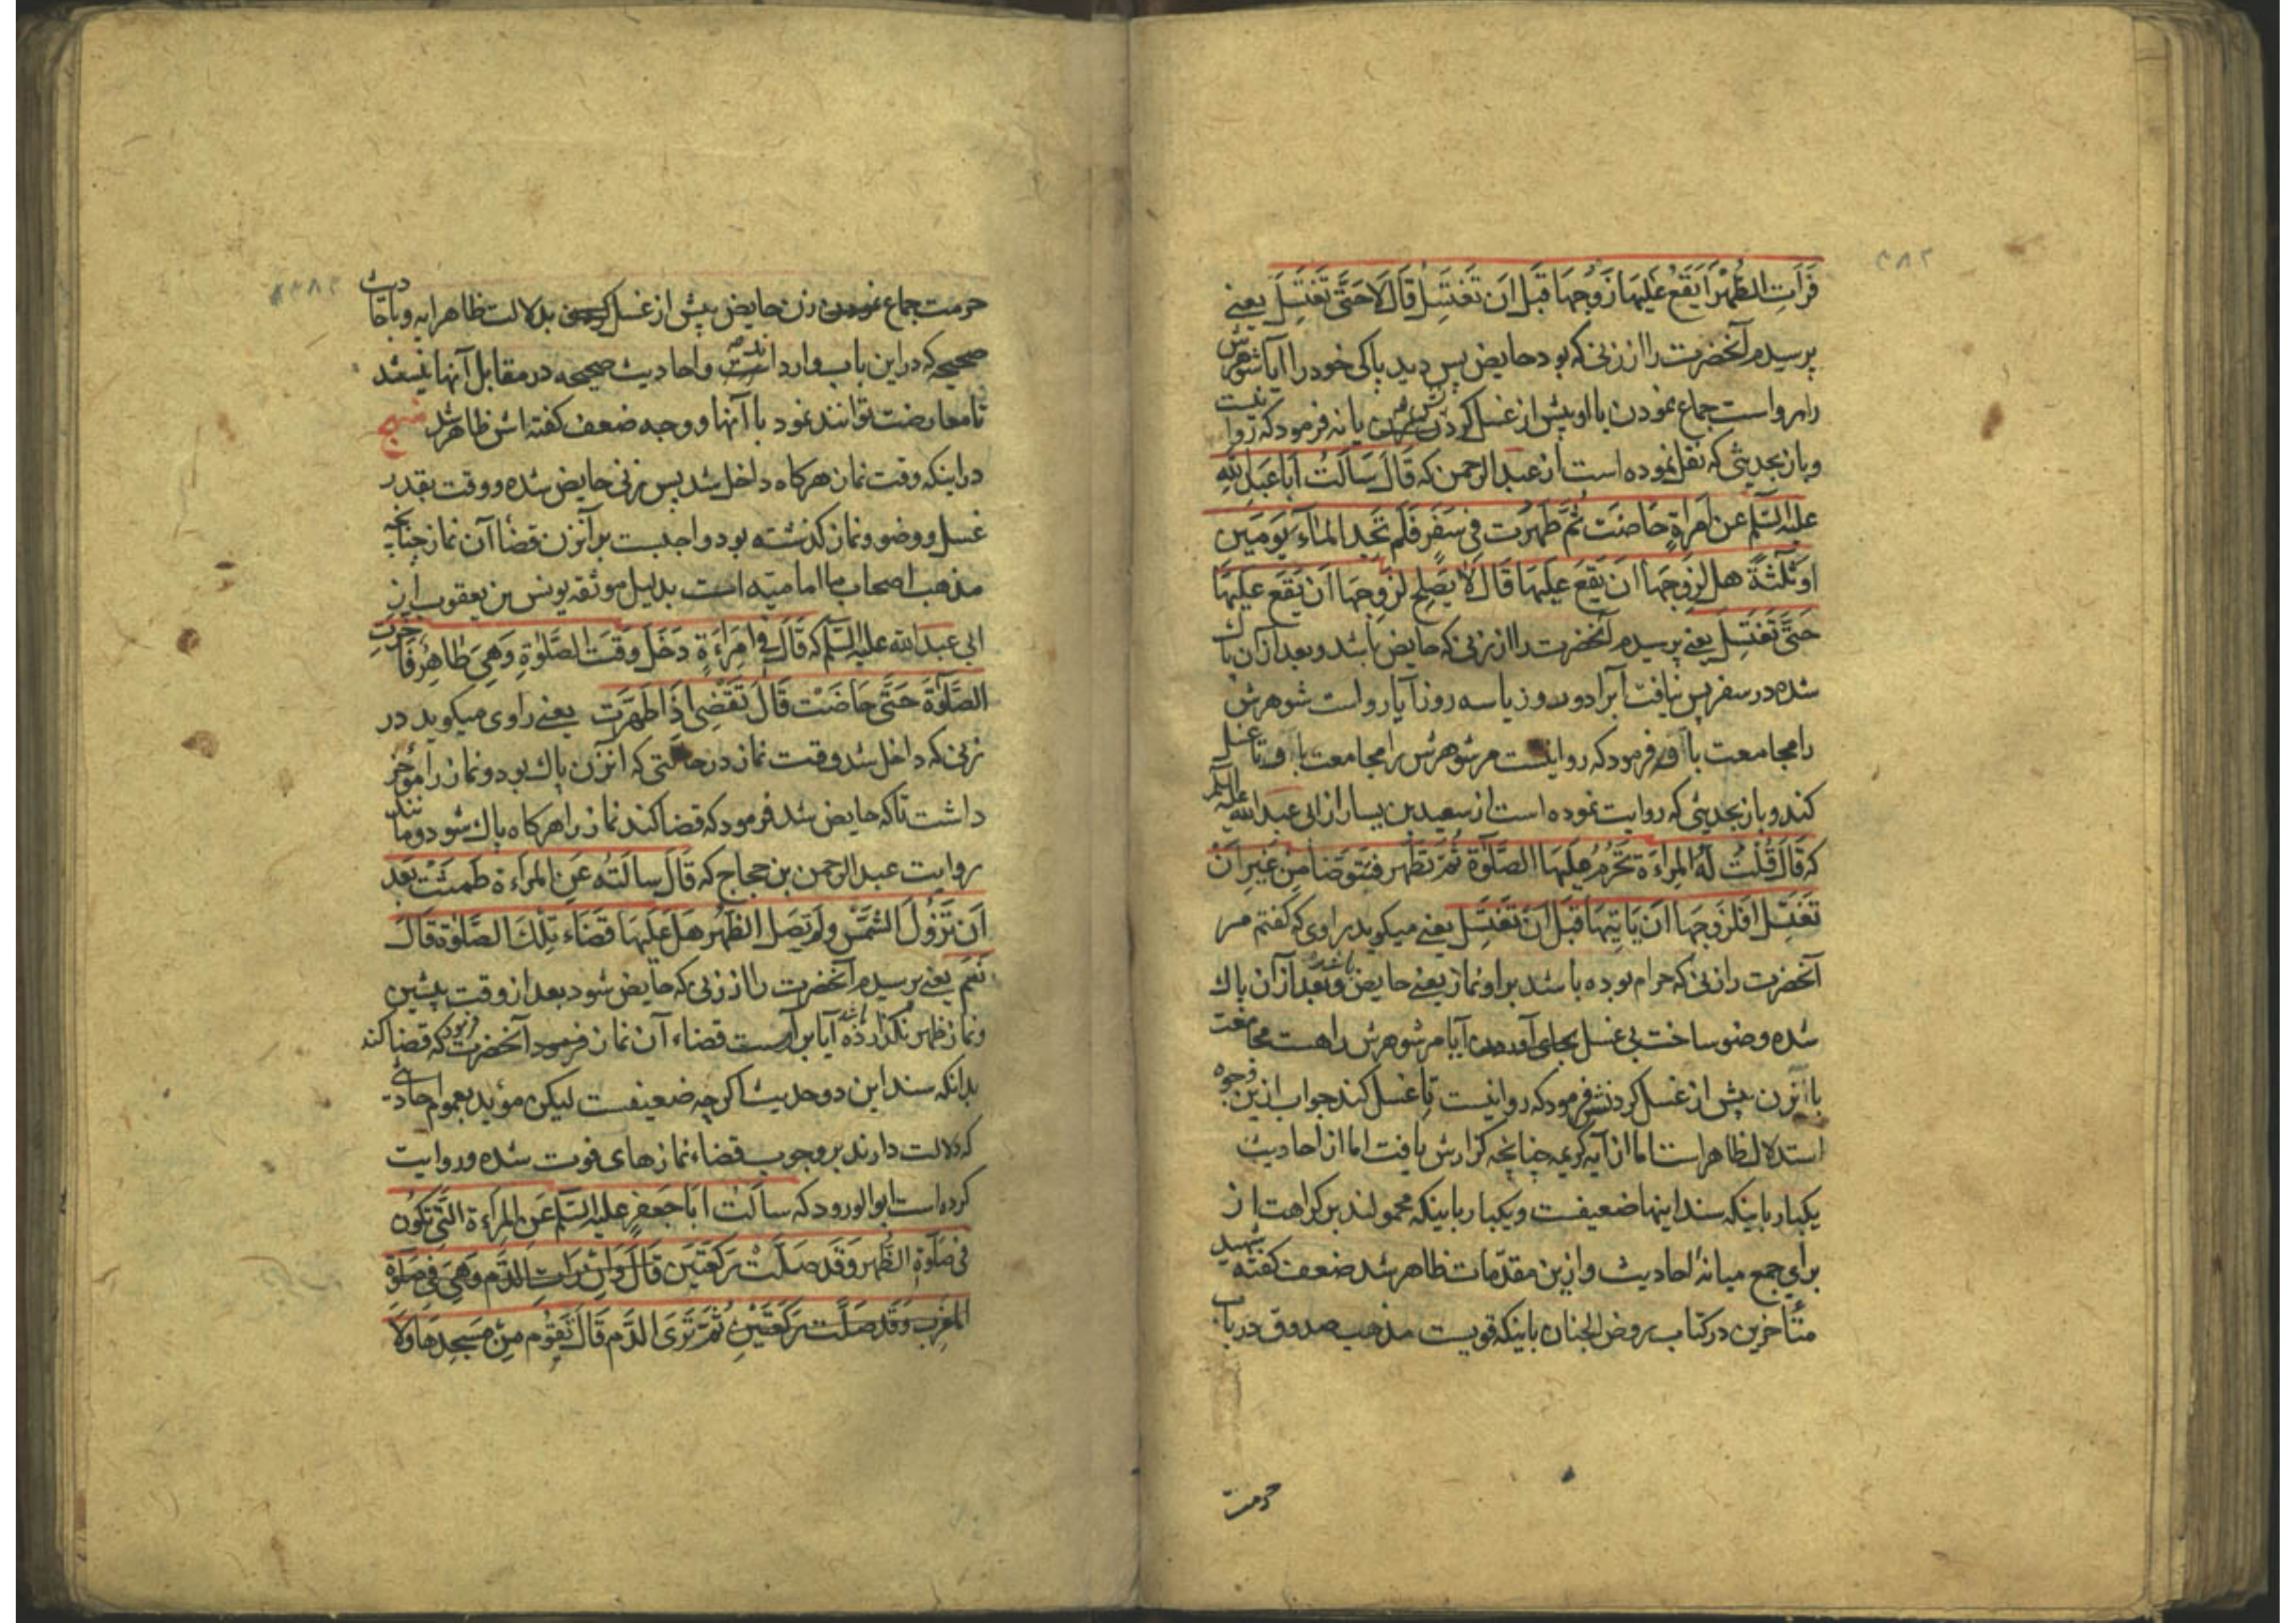 ۳۸۲
فَرَأَتِ الطُّهْرَ أَيَقَعُ عَلَيْهَا زَوْجُهَا قَبْلَ اَنْ تَغْتَسِلَ قَالَ لَا حَتَّى تَغْتَسِلَ يعنى
پرسیدم آنحضرت را از زنى که بود حایض پس دید پاکى خود را آیا شوهرش
را رواست جماع نمودن با او پیش از غسل کردنش یا نه فرمود که روا نیست
و باز بحدیثى که نقل نموده است از عبد الرحمن که قَالَ سَاَلْتُ اَبَا عَبْدِ اللهِ
علیه السّلم عن امرأةٍ حَاضَت ثُمَّ طَهُرَت فى سَفَرٍ فَلَم تَجِدِ المَاءَ يَومَين
اَو ثَلثَةً هل لِزَوجِهَا اَن يَقَعَ عَلَيهَا قَالَ لَا يَصلِح لِزَوجِهَا اَن يَقَعَ عَلَيهَا
حَتَّى تَغتَسِلَ یعنى پرسیدم آنحضرت را از زنى که حایض باشد و بعد از آن پاک
شده در سفر پس نیافت آبرا دو روز یا سه روز آیا رواست شوهرش
را مجامعت با او فرمود که روا نیست مر شوهرش را مجامعت با او تا غسل
کند و باز بحدیثى که روایت نموده است از سعید بن یسار از ابى عبد الله علیه السلم
که قَالَ قُلتُ لَهُ المَراَءَة تَحرُمُ عَلَيهَا الصَّلوٰة ثُمَّ تَطَهَّر فَتَوَضَّأ مِن غَيرِ اَنْ
تَغتَسِل افلزوجها اَن يَاتِيَهَا قَبلَ اَنْ تَغتَسِل یعنى میکوید راوى که کفتم مر
آنحضرت را زنى که حرام بوده باشد بر او نماز یعنى حایض باشد و بعد از آن پاک
شده وضو ساخت بى غسل بجاى آوردن آیا مر شوهرش راهست مجامعت
با آنزن پیش از غسل کردنش فرمود که روا نیست تا غسل کند جواب ازین وجوه
استدلال ظاهر است اما از آیه کریمه چنانچه کزارش یافت اما از احادیث
یکبار باینکه سند اینها ضعیفست و یکبار باینکه محمولند بر کراهت از
براى جمع میانه احادیث و ازین مقدّمات ظاهر شد ضعف کفته شهید
متأخرین در کتاب روض الجنان باینکه قویست مذهب صدوق در باب
حرمت
حرمت جماع نمودن زن حایض پیش از غسل کردن بدلالت ظاهر آیه و باحادیث
صحیحه که در این باب وارد است و احادیث صحیحه در مقابل آنها نیستند
تا معارضت توانند نمود با آنها و وجه ضعف کفته اش ظاهر شد
در اینکه وقت نماز هرکاه داخل شد پس زنى حایض شده و وقت بقدر
غسل و وضو و نماز کذشته بود واجبست بر آنزن قضاء آن نماز چنانچه
مذهب اصحاب ما امامیّه است بدلیل موثقه یونس بن یعقوب از
ابى عبد الله علیه السّلم که قَالَ فى امرأَةٍ دَخَلَ وَقتَ الصَّلوٰةِ وَهِىَ طَاهِر فَاَخَّرتِ
الصَّلوٰةَ حَتَّى حَاضَتْ قَالَ تَقضِى اِذَا طَهُرَت یعنى راوى میکوید در
زنى که داخل شد وقت نماز در حالتى که آنزن پاک بود و نماز را مؤخّر
داشت تا که حایض شد فرمود که قضا کند نماز را هرکاه پاک شود و مانند
روایت عبد الرحمن بن حجاج که قَالَ سَاَلتُه عَنِ المَراَءة طَمِثَتْ بَعدَ
اَن تَزُولَ الشَّمسُ ولم تُصَلِّ الظُّهرَ هَل عَلَيهَا قَضَاء تِلكَ الصَّلوٰة قَالَ
نَعَم یعنى پرسیدم آنحضرت را از زنى که حایض شود بعد از وقت پیشین
و نماز ظهر نکذارده باشد آیا بر اوست قضاء آن نماز فرمود آنحضرت که قضا کند
بدانکه سند این دو حدیث اکرچه ضعیفست لیکن مؤید بعموم احادیثى
که دلالت دارند بر وجوب قضاء نمازهاى فوت شده و روایت
کرده است ابو الورود که سالتُ اَبَا جَعفرٍ علیه السّلم عَنِ المَرأَة الَّتِى تَكُونُ
فى صَلوٰةِ الظُّهر وَقَد صَلَّتْ رَكعَتَين قَالَ وَاِنْ رَاَتِ الدَّم وَهِىَ فِى صَلوٰةِ
المَغرِب وَقَد صَلَّت رَكعَتَيْنِ ثُمَّ تَرَى الدَّم قَالَ تَقُوم مِنْ مَسجِدِهَا وَلَا